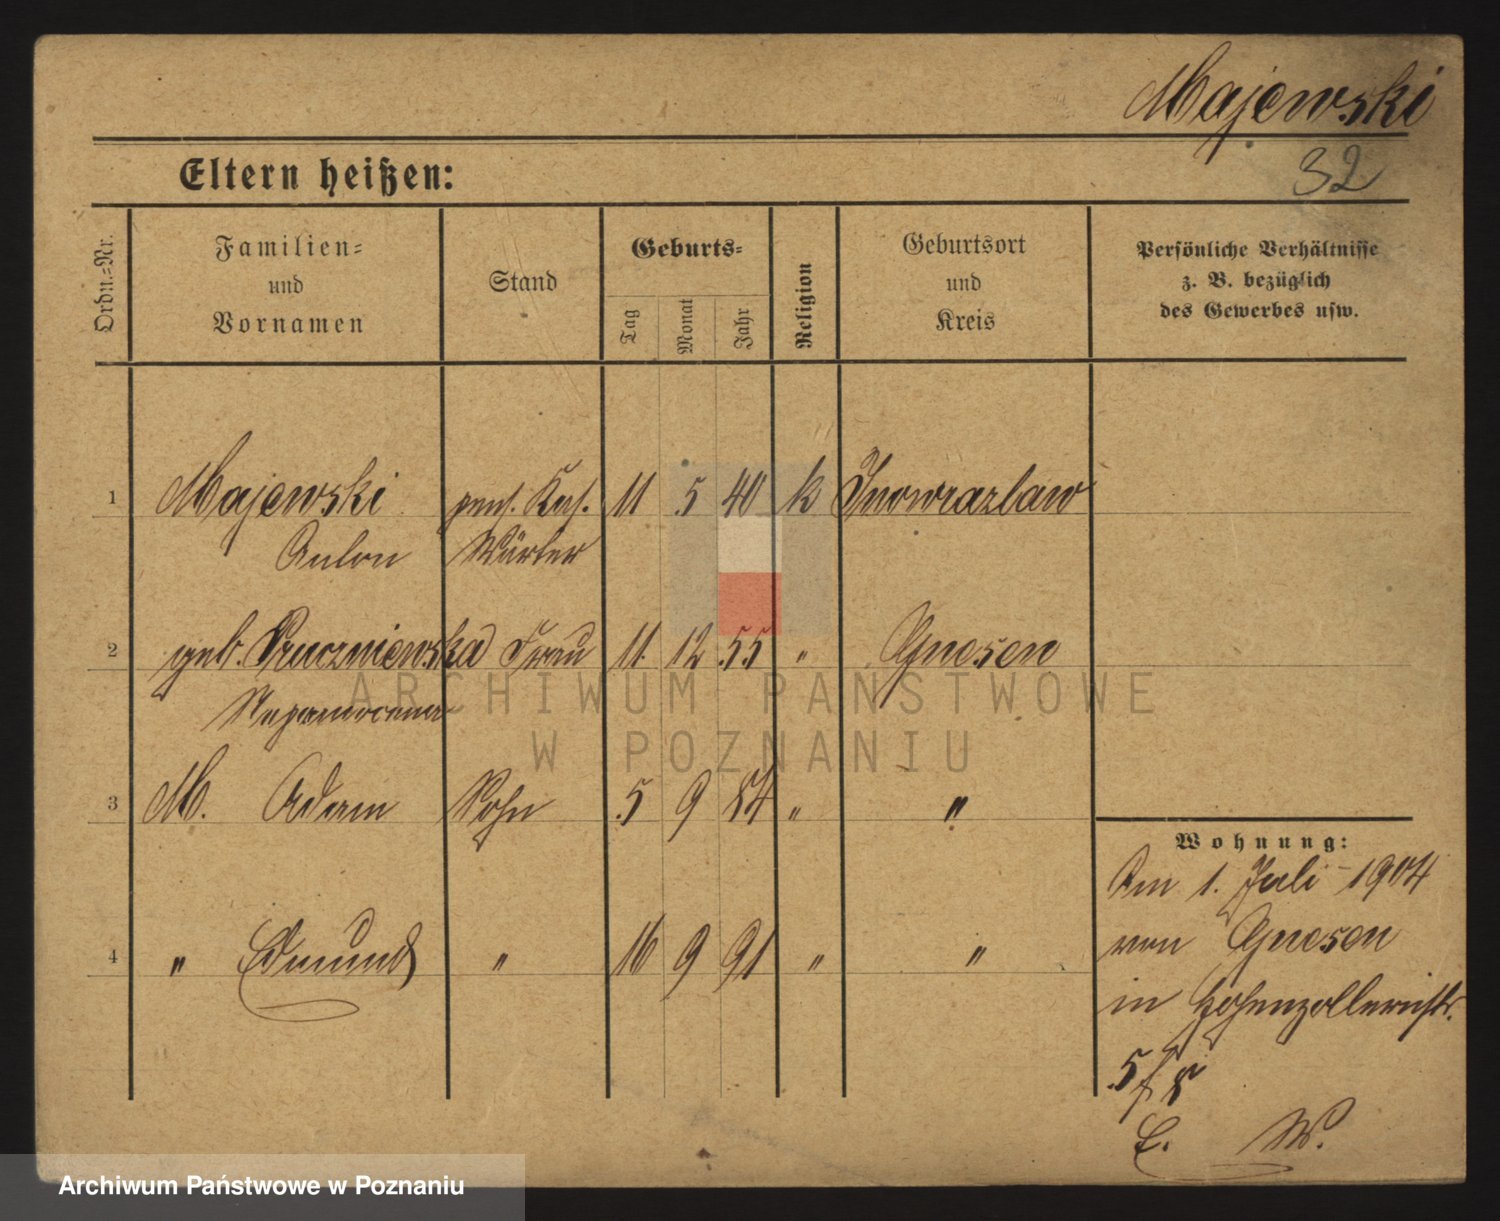 Majewski
32
Eltern heißen:
Ordn.=Nr.
Familien=
und
Vornamen
Stand
Geburts=
Tag
Monat
Jahr
Religion
Geburtsort
und
Kreis
Persönliche Verhältnisse
z. B. bezüglich
des Gewerbes usw.
1 Majewski pens. Kas. 11 5 40 k Inowrazlaw
Anton Wärter
2 geb. Pruczniewska Frau 11. 12 55 " Gnesen
Nepomocena
3 M. Adam Sohn 5 9 84 " "
4 " Edmund " 16 9 91 " "
Wohnung:
Am 1. Juli 1904
von Gnesen
in Hohenzollernstr.
5/8
E. W.
ARCHIWUM PAŃSTWOWE
W POZNANIU
Archiwum Państwowe w Poznaniu